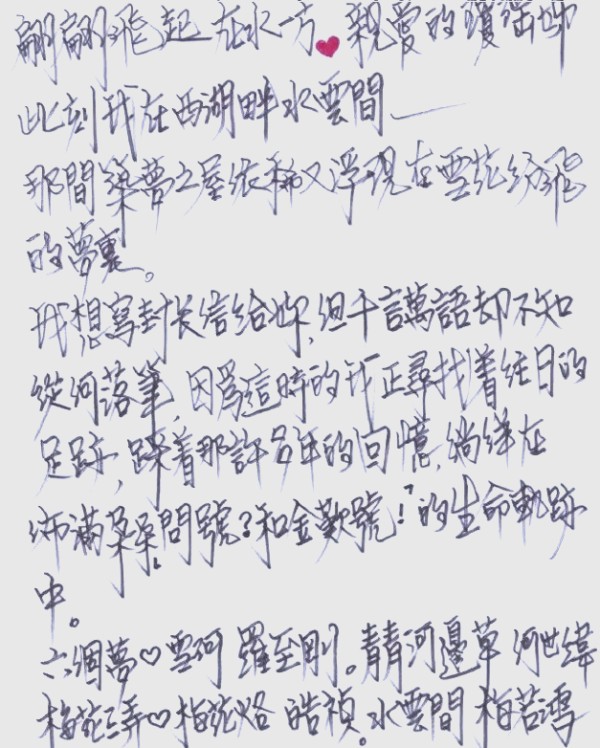 翩翩飛起在水一方♥親愛的瓊瑤姊
此刻我在西湖畔水雲間—
那間築夢之屋依稀又浮現在雪花紛飛
的夢裏。
我想寫封长信給妳,但千言萬語却不知
從何落筆,因爲這時的我正尋找着往日的
足跡,踩着那許多年的回憶,徜徉在
佈滿朵朵問號?和金歎號!的生命軌跡
中。
六個夢♡雪河 羅至剛。青青河邊草 何世緯
梅花三弄♡梅花烙 皓禎。水雲間 梅若鴻